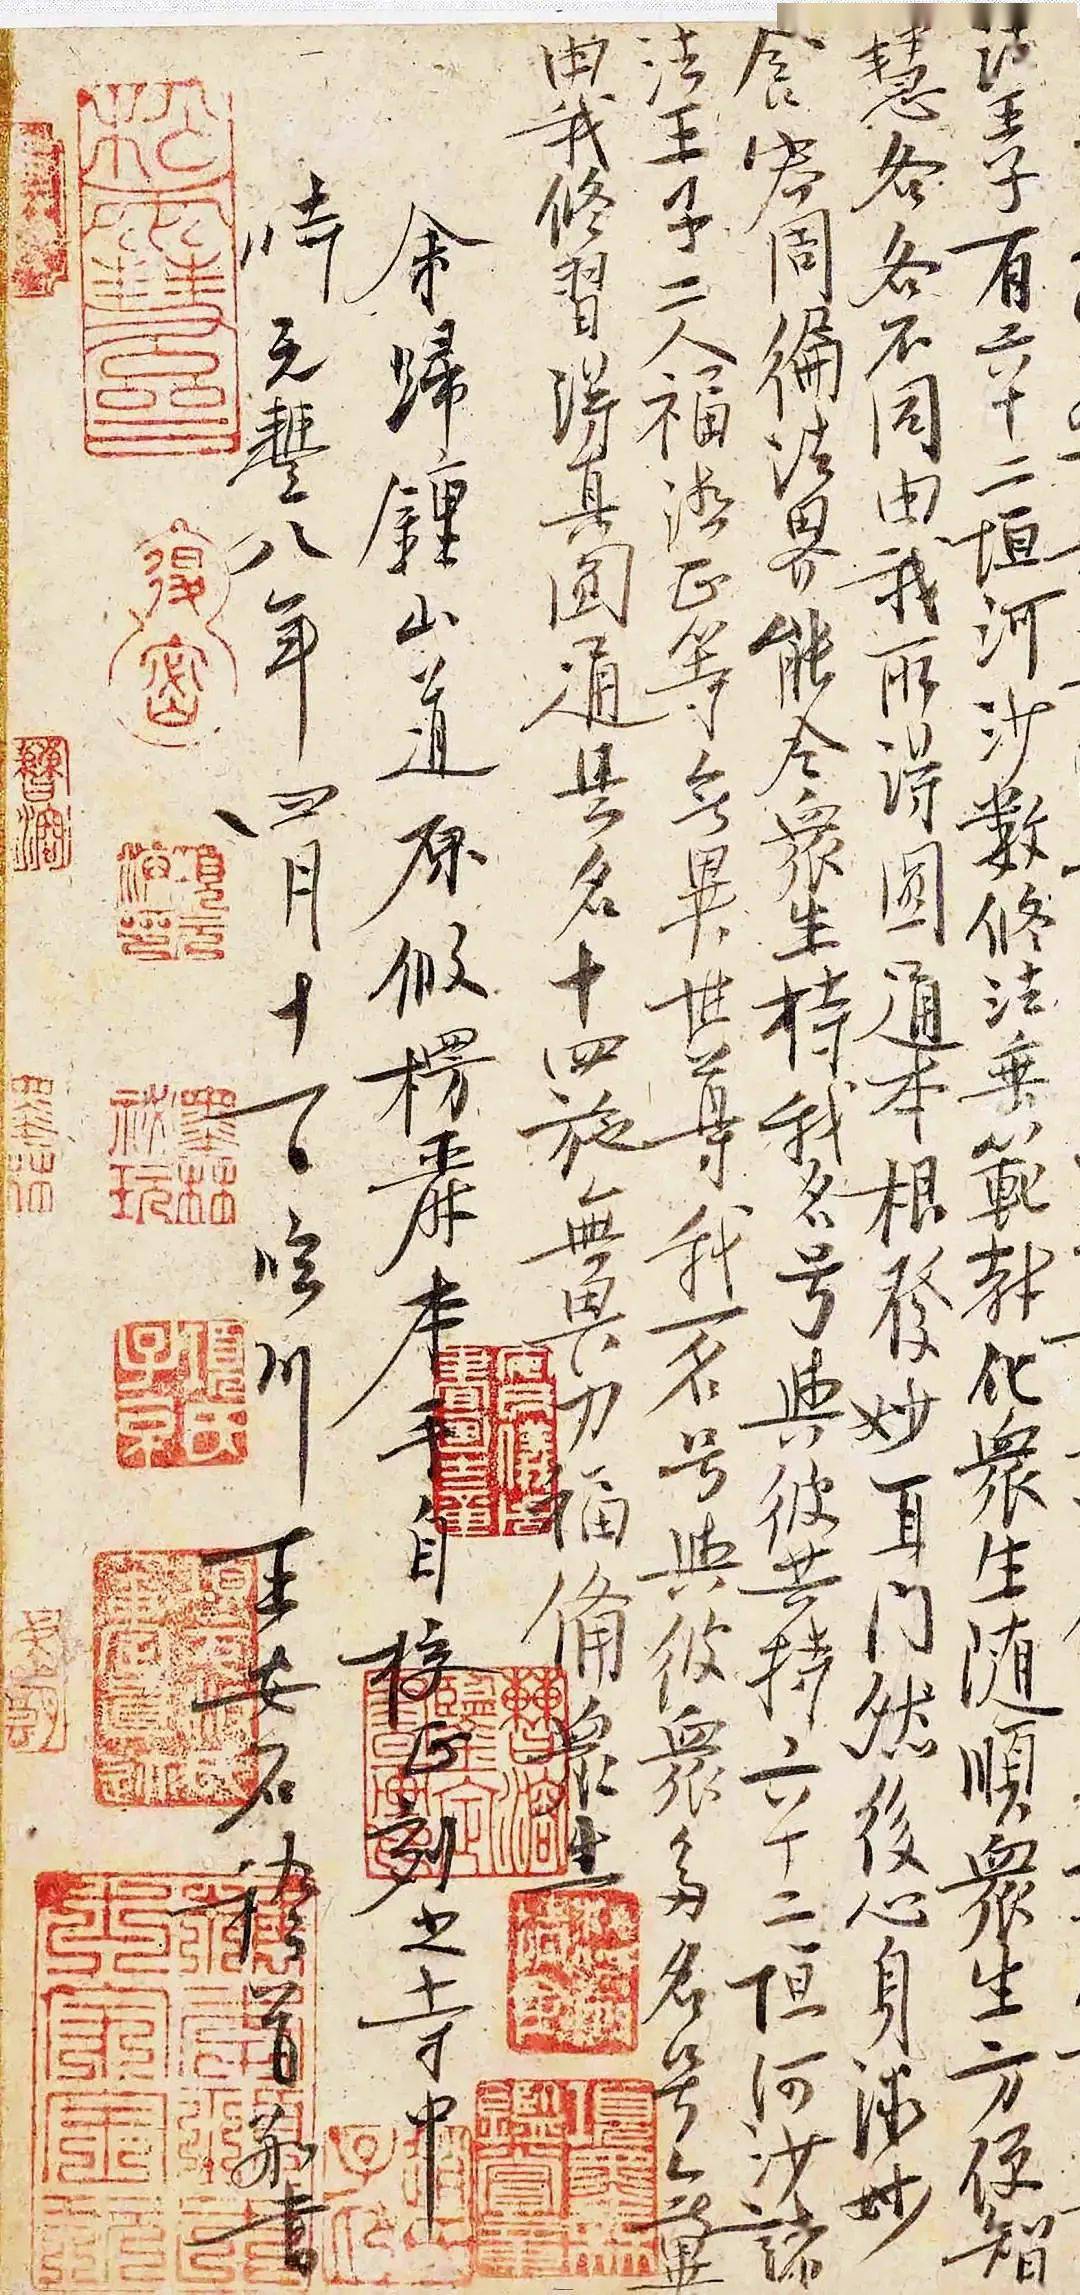 法王子有六十二恒河沙數修法垂範教化衆生随順衆生方便智
慧各各不同由我所得圓通本根發妙耳門然後心身微妙
含容周徧法界能令衆生持我名号與彼共持六十二恒河沙諸
法王子二人福德正等无異世尊我一名号與彼衆多名号無異
由我修習得真圓通是名十四施無畏力福備衆生
余歸鍾山道原假楞嚴本手自校正刻之寺中
時元豐八年四月十一日臨川王安石稽首敬書
項元汴印
墨林秘玩
項氏子京
項墨林鑑賞章